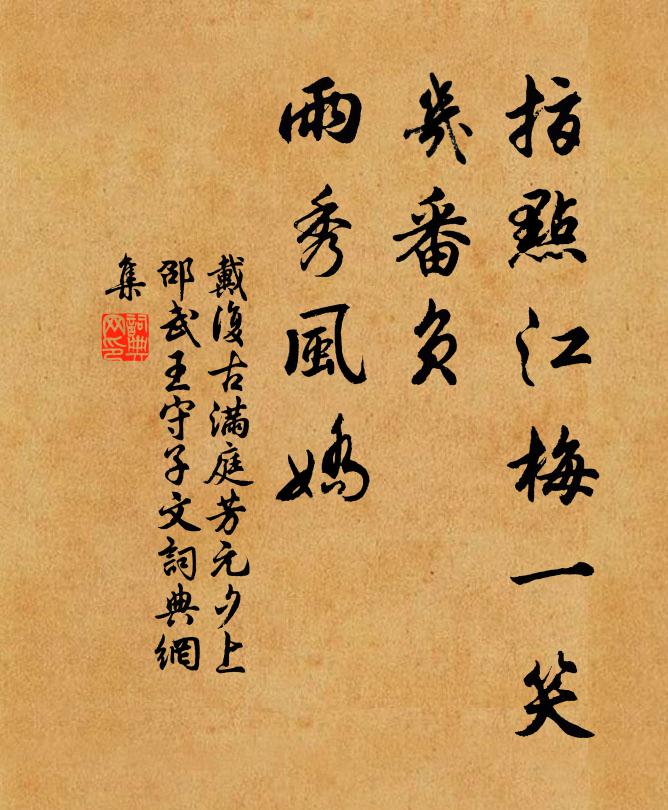 指點江梅一笑
幾番負
雨秀風嬌
戴復古滿庭芳元夕上
邵武王守子文詞典網
集
詞典網印